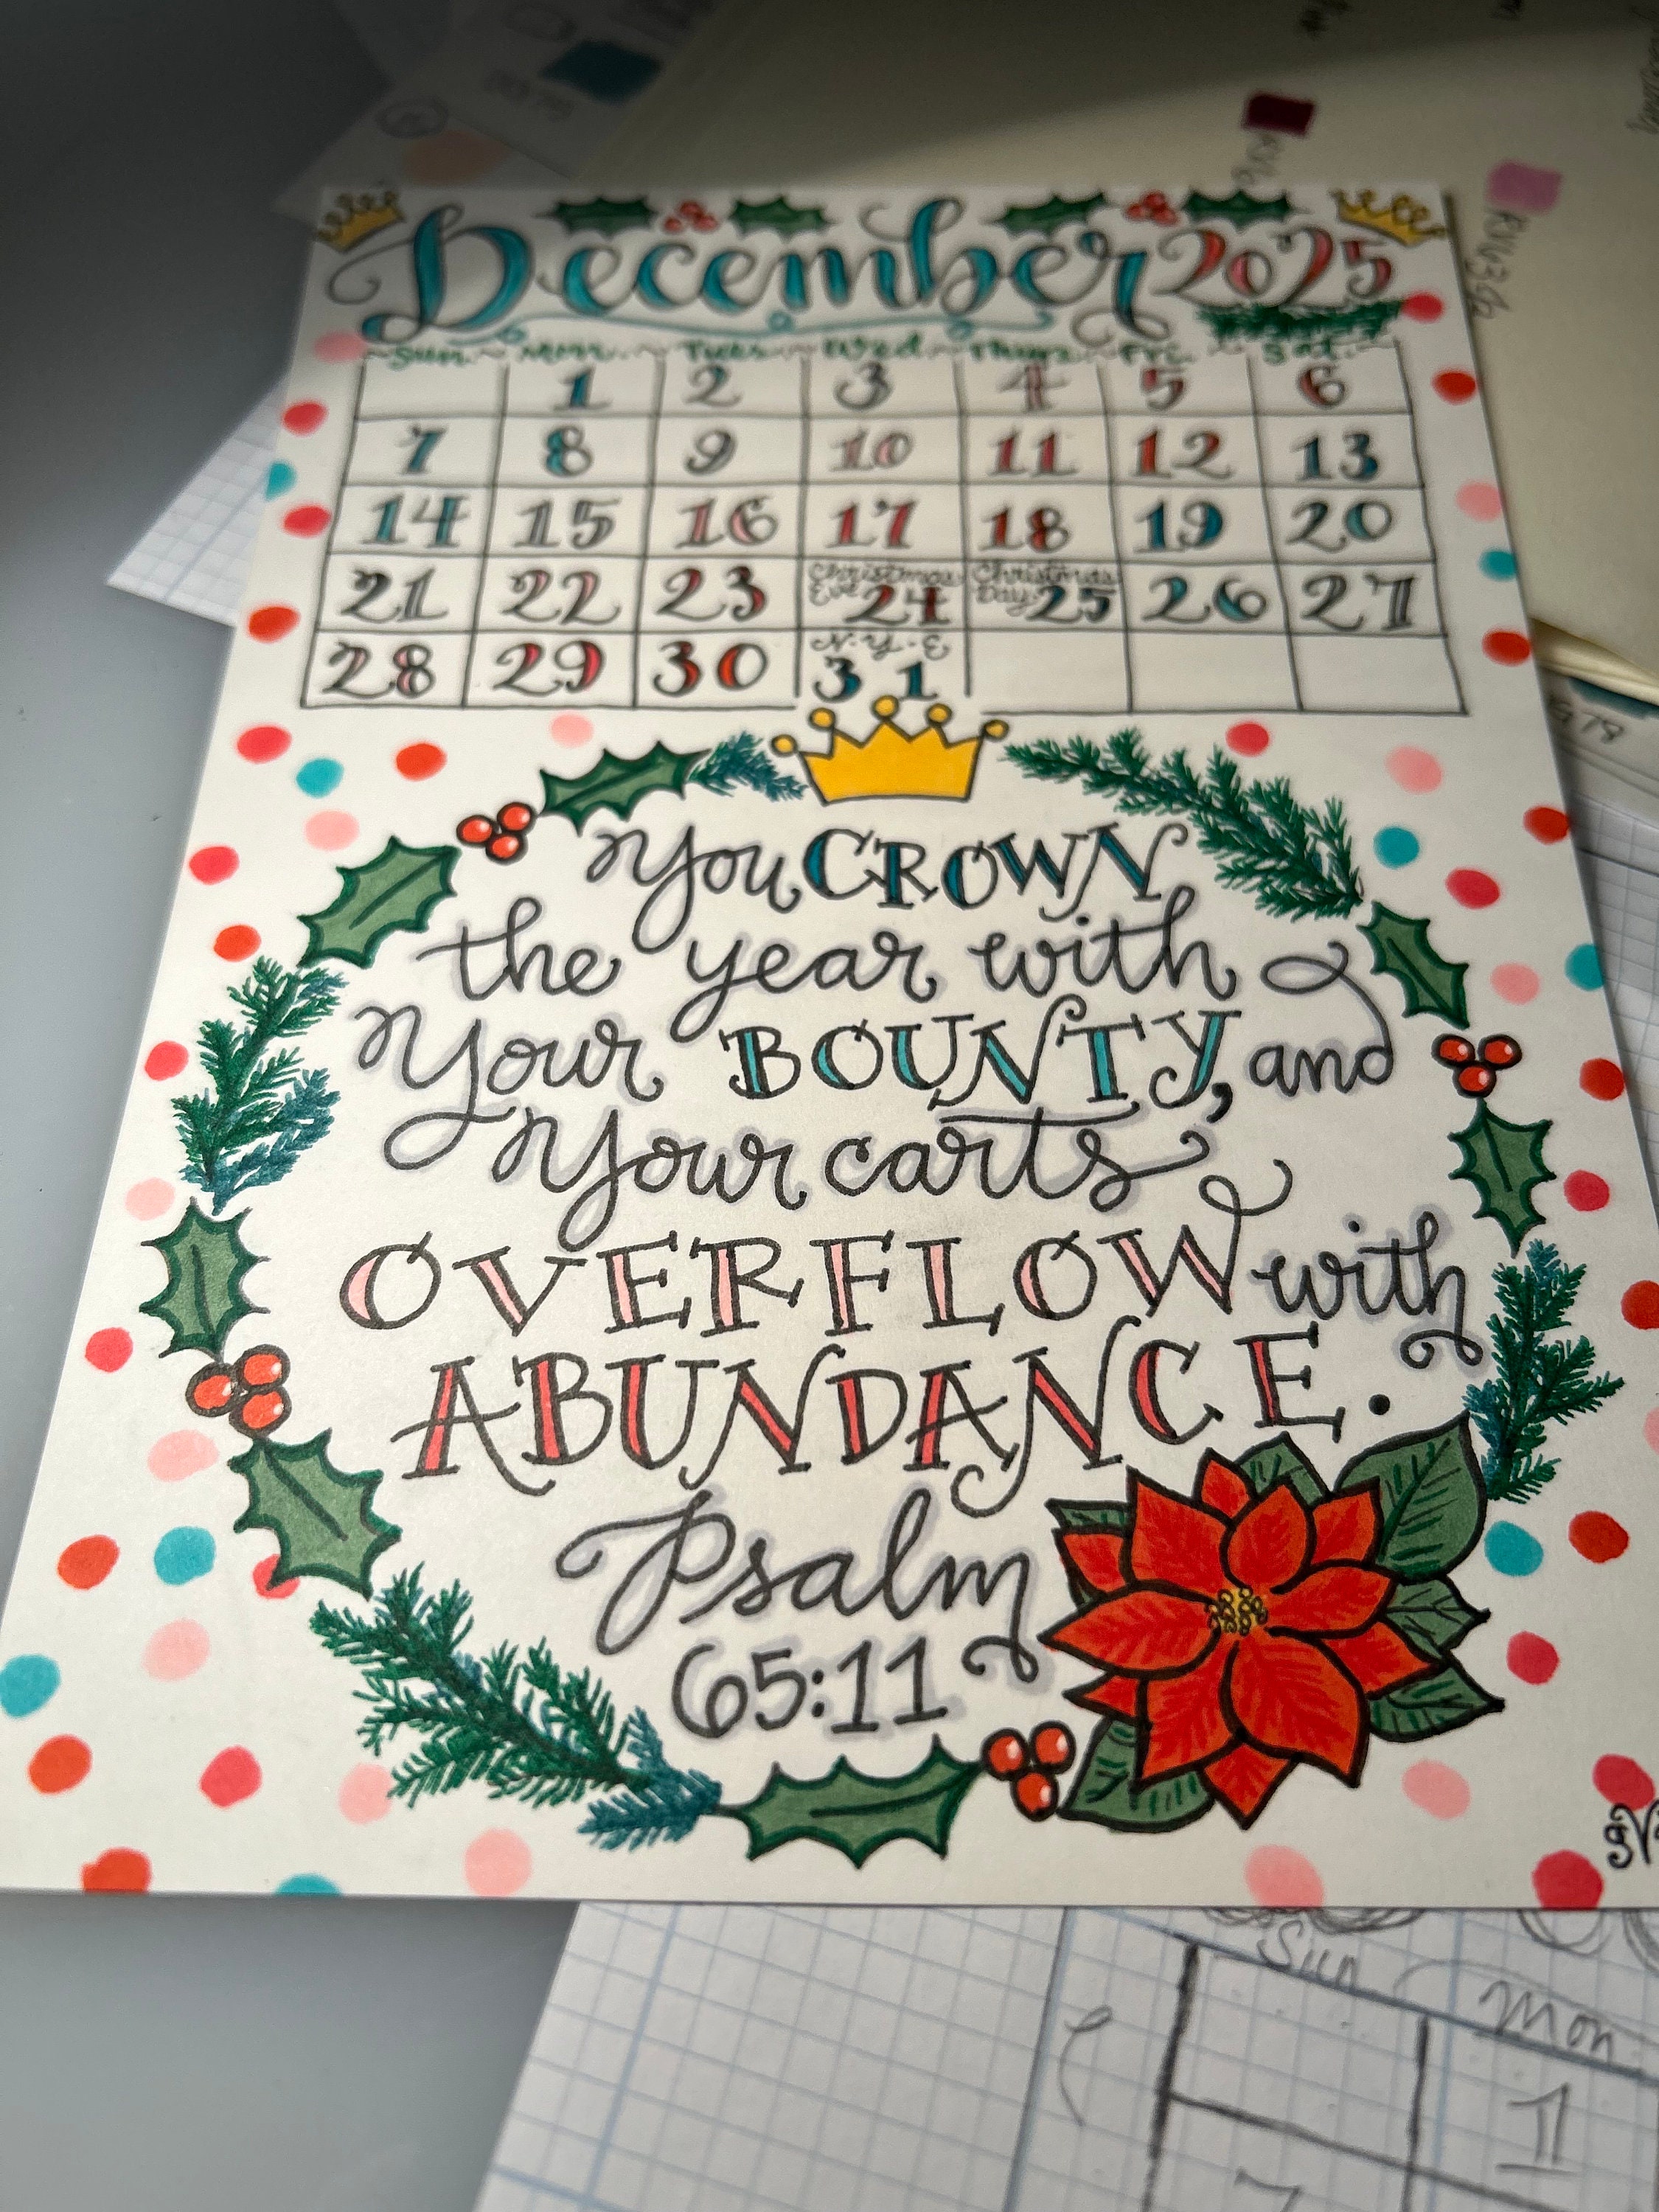 December 2025
Sun. Mon. Tues. Wed. Thurs. Fri. Sat.
1 2 3 4 5 6
7 8 9 10 11 12 13
14 15 16 17 18 19 20
Christmas Christmas
21 22 23 Eve 24 Day 25 26 27
N.Y.E
28 29 30 31
You CROWN
the year with
Your BOUNTY, and
Your carts
OVERFLOW with
ABUNDANCE.
Psalm
65:11
Sun Mon
1
7